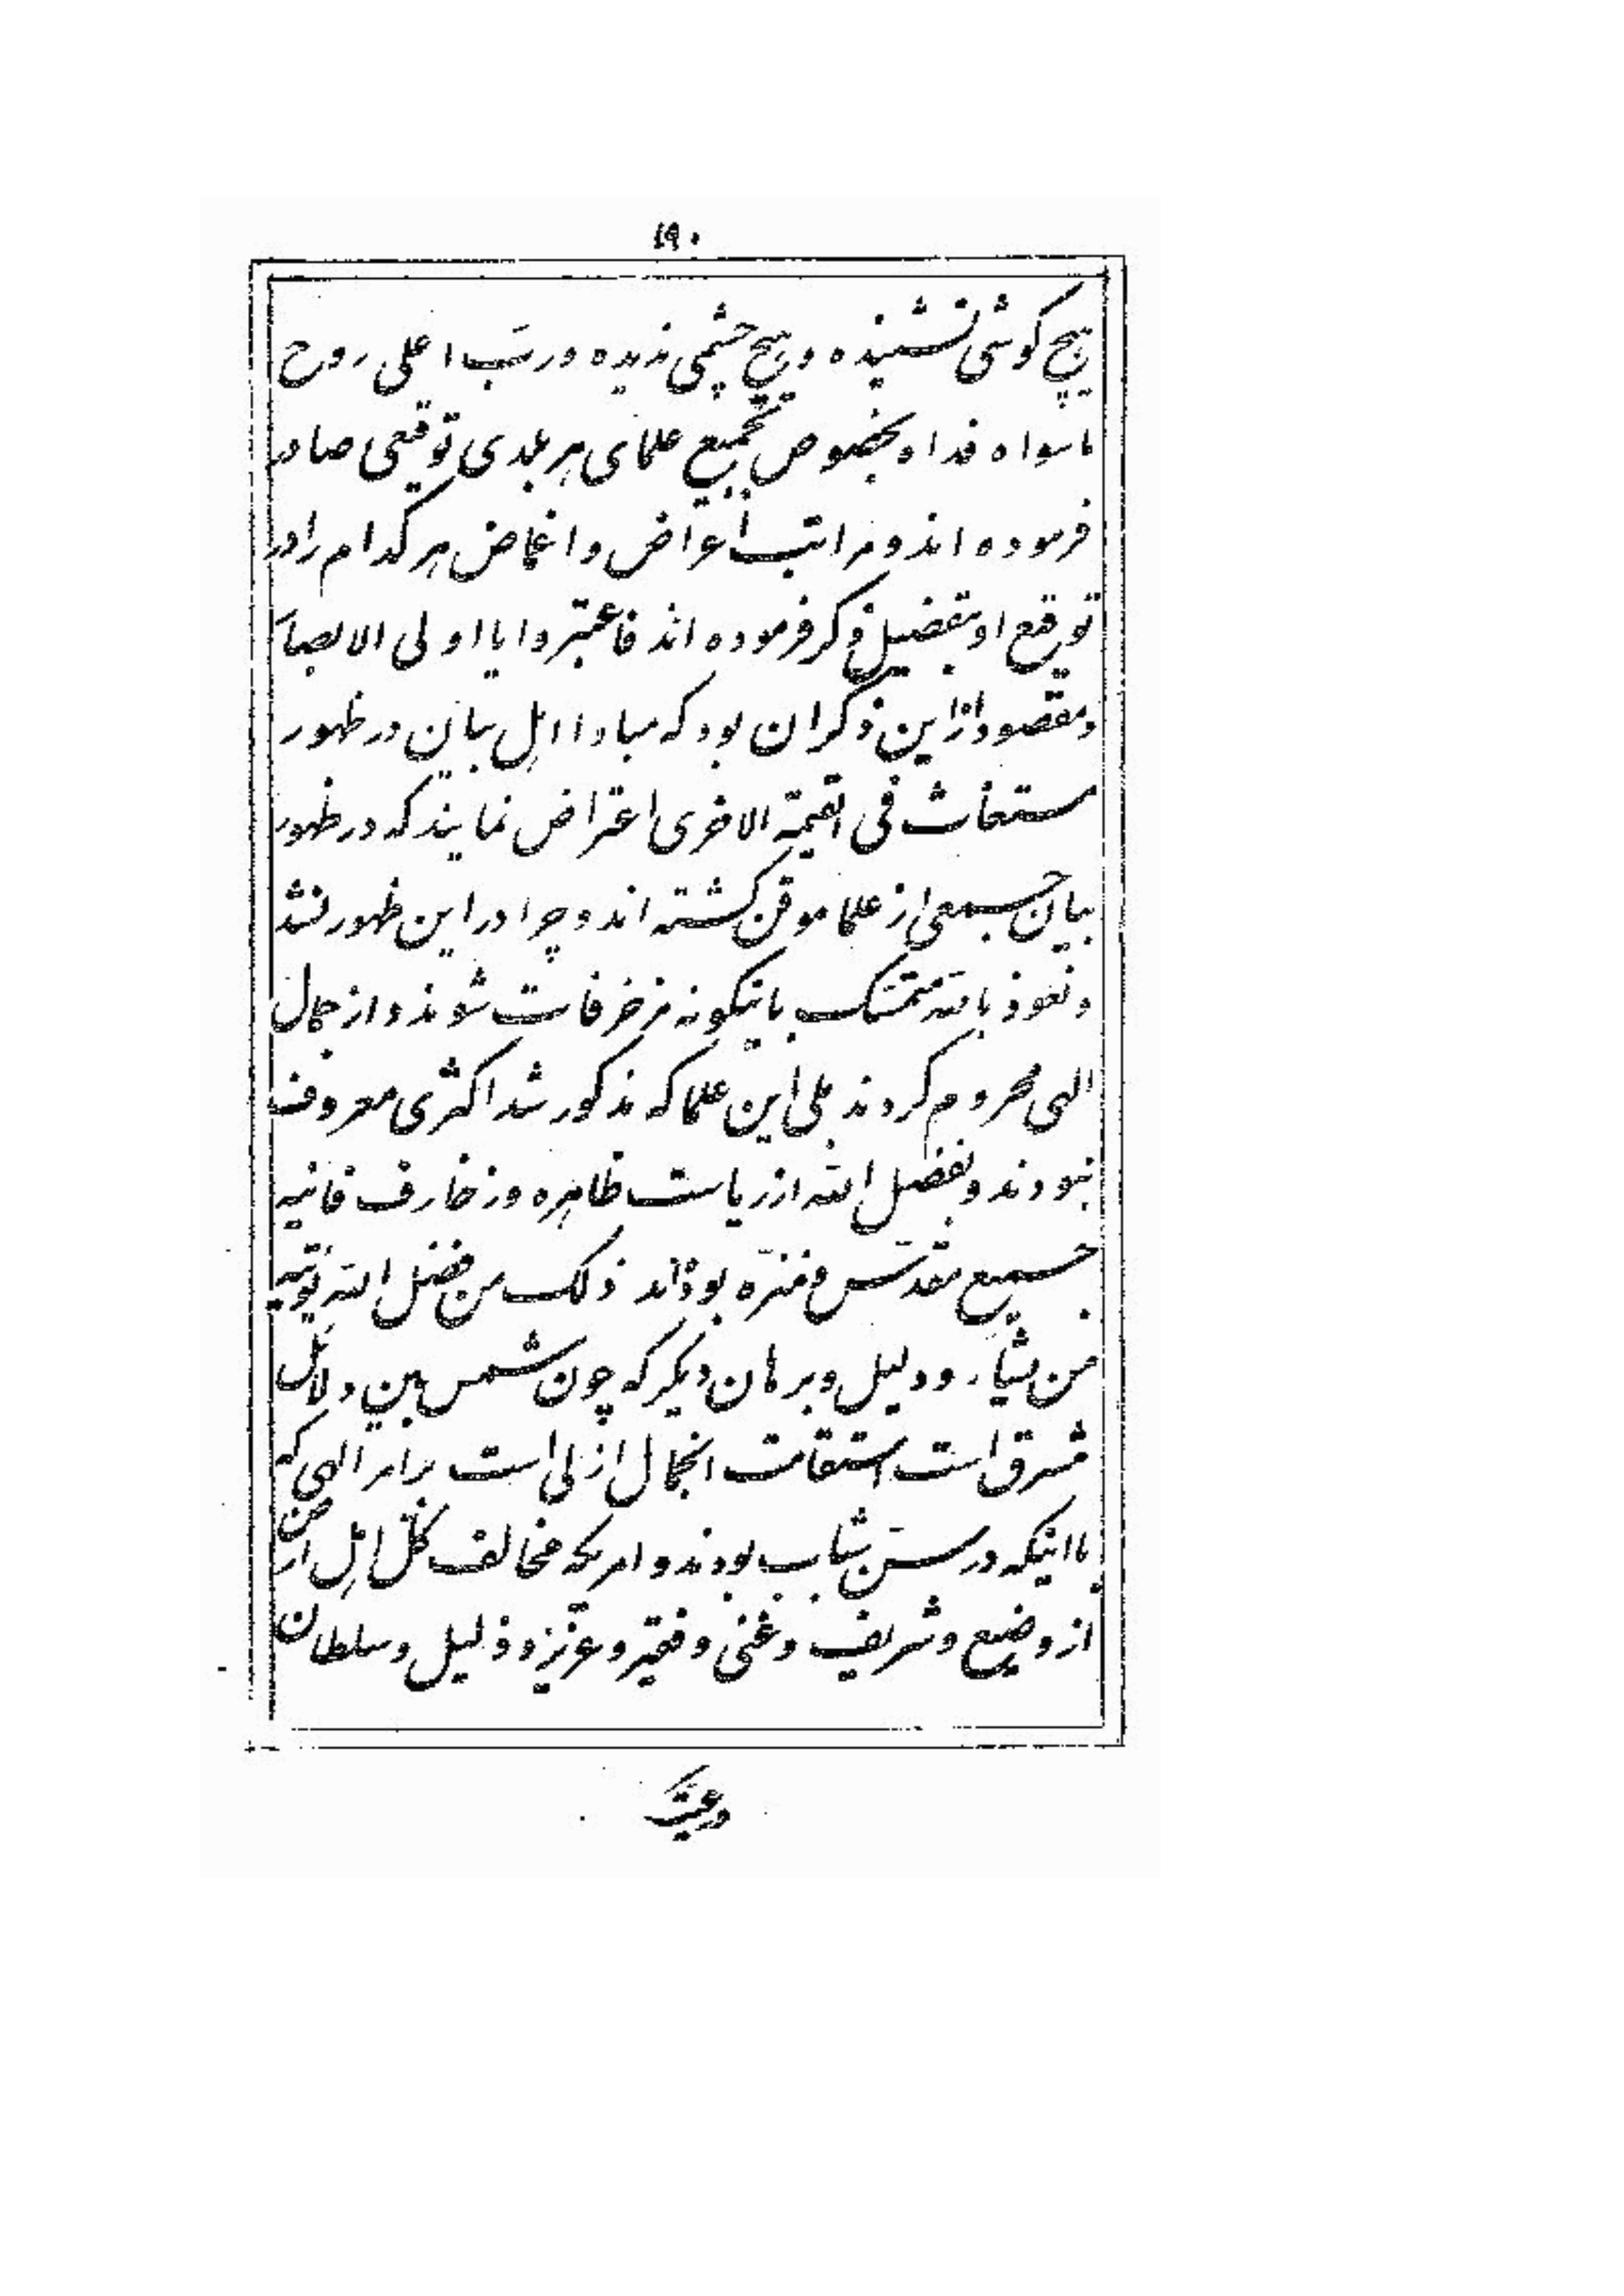 ۱۹۰
هیچ کوشی نشنیده و هیچ چشمی ندیده و ربّ اعلی روح
ماسواه فداه بخصوص بجمیع علمای هر بلدی توقیعی صادر
فرموده اند و مراتب اعراض و اغماض هر کدام را در
توقیع او بتفضیل ذکر فرموده اند فاعتبروا یا اولی الابصار
و مقصود از این ذکر ان بود که مبادا اهل بیان در ظهور
مستغاث فی القیمة الاخری اعتراض نمایند که در ظهور
بیان جمعی از علما موقن کشته اند و چرا در این ظهور نشد
و نعوذ بالله متمسّک باینکونه مزخرفات شوند و از جمال
الهی محروم کردند بلی این علما که مذکور شد اکثری معروف
نبودند و بفضل الله از ریاست ظاهره و زخارف فانیه
جمیع مقدّس و منزّه بوده‌اند ذلک من فضل الله یؤتیه
من یشآء و دلیل و برهان دیکر که چون شمس بین دلائل
مشرق است استقامت انجمال ازلی است بر امر الهی که
با اینکه در سنّ شباب بودند و امریکه مخالف کلّ اهل ارض
از وضیع و شریف و غنی و فقیر و عزیز و ذلیل و سلطان
و رعیّت